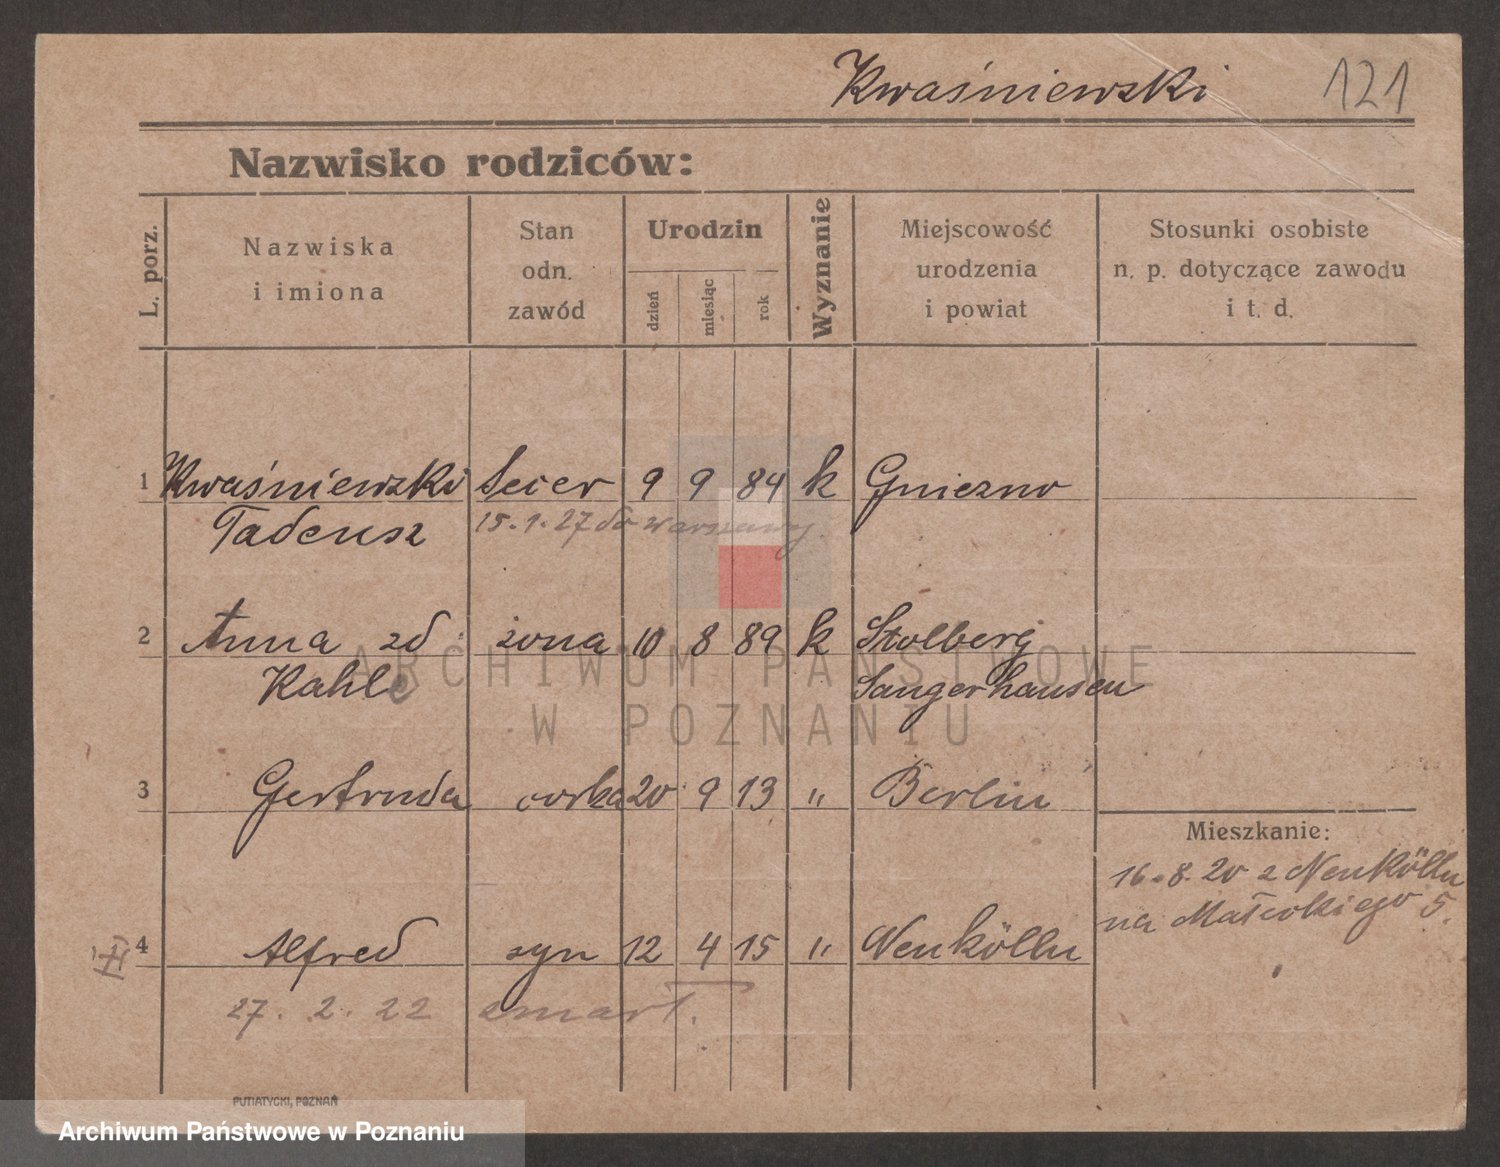 Kwaśniewski 121
Nazwisko rodziców:
L. porz.
Nazwiska
i imiona
Stan
odn.
zawód
Urodzin
dzień
miesiąc
rok
Wyznanie
Miejscowość
urodzenia
i powiat
Stosunki osobiste
n. p. dotyczące zawodu
i t. d.
1 Kwaśniewski 9 9 84 k Gniezno
Tadeusz 15.1.27 do warszawy
2 Anna zd żona 10 8 89 k Stolberg
Kahle Sangerhausen
3 Gertruda corka 20 9 13 " Berlin
Mieszkanie:
16.8.20 z Neukölln
na Małeckiego 5.
4 Alfred syn 12 4 15 " Neukölln
27. 2. 22 zmarł.
PUTIATYCKI, POZNAŃ
ARCHIWUM PAŃSTWOWE
W POZNANIU
Archiwum Państwowe w Poznaniu